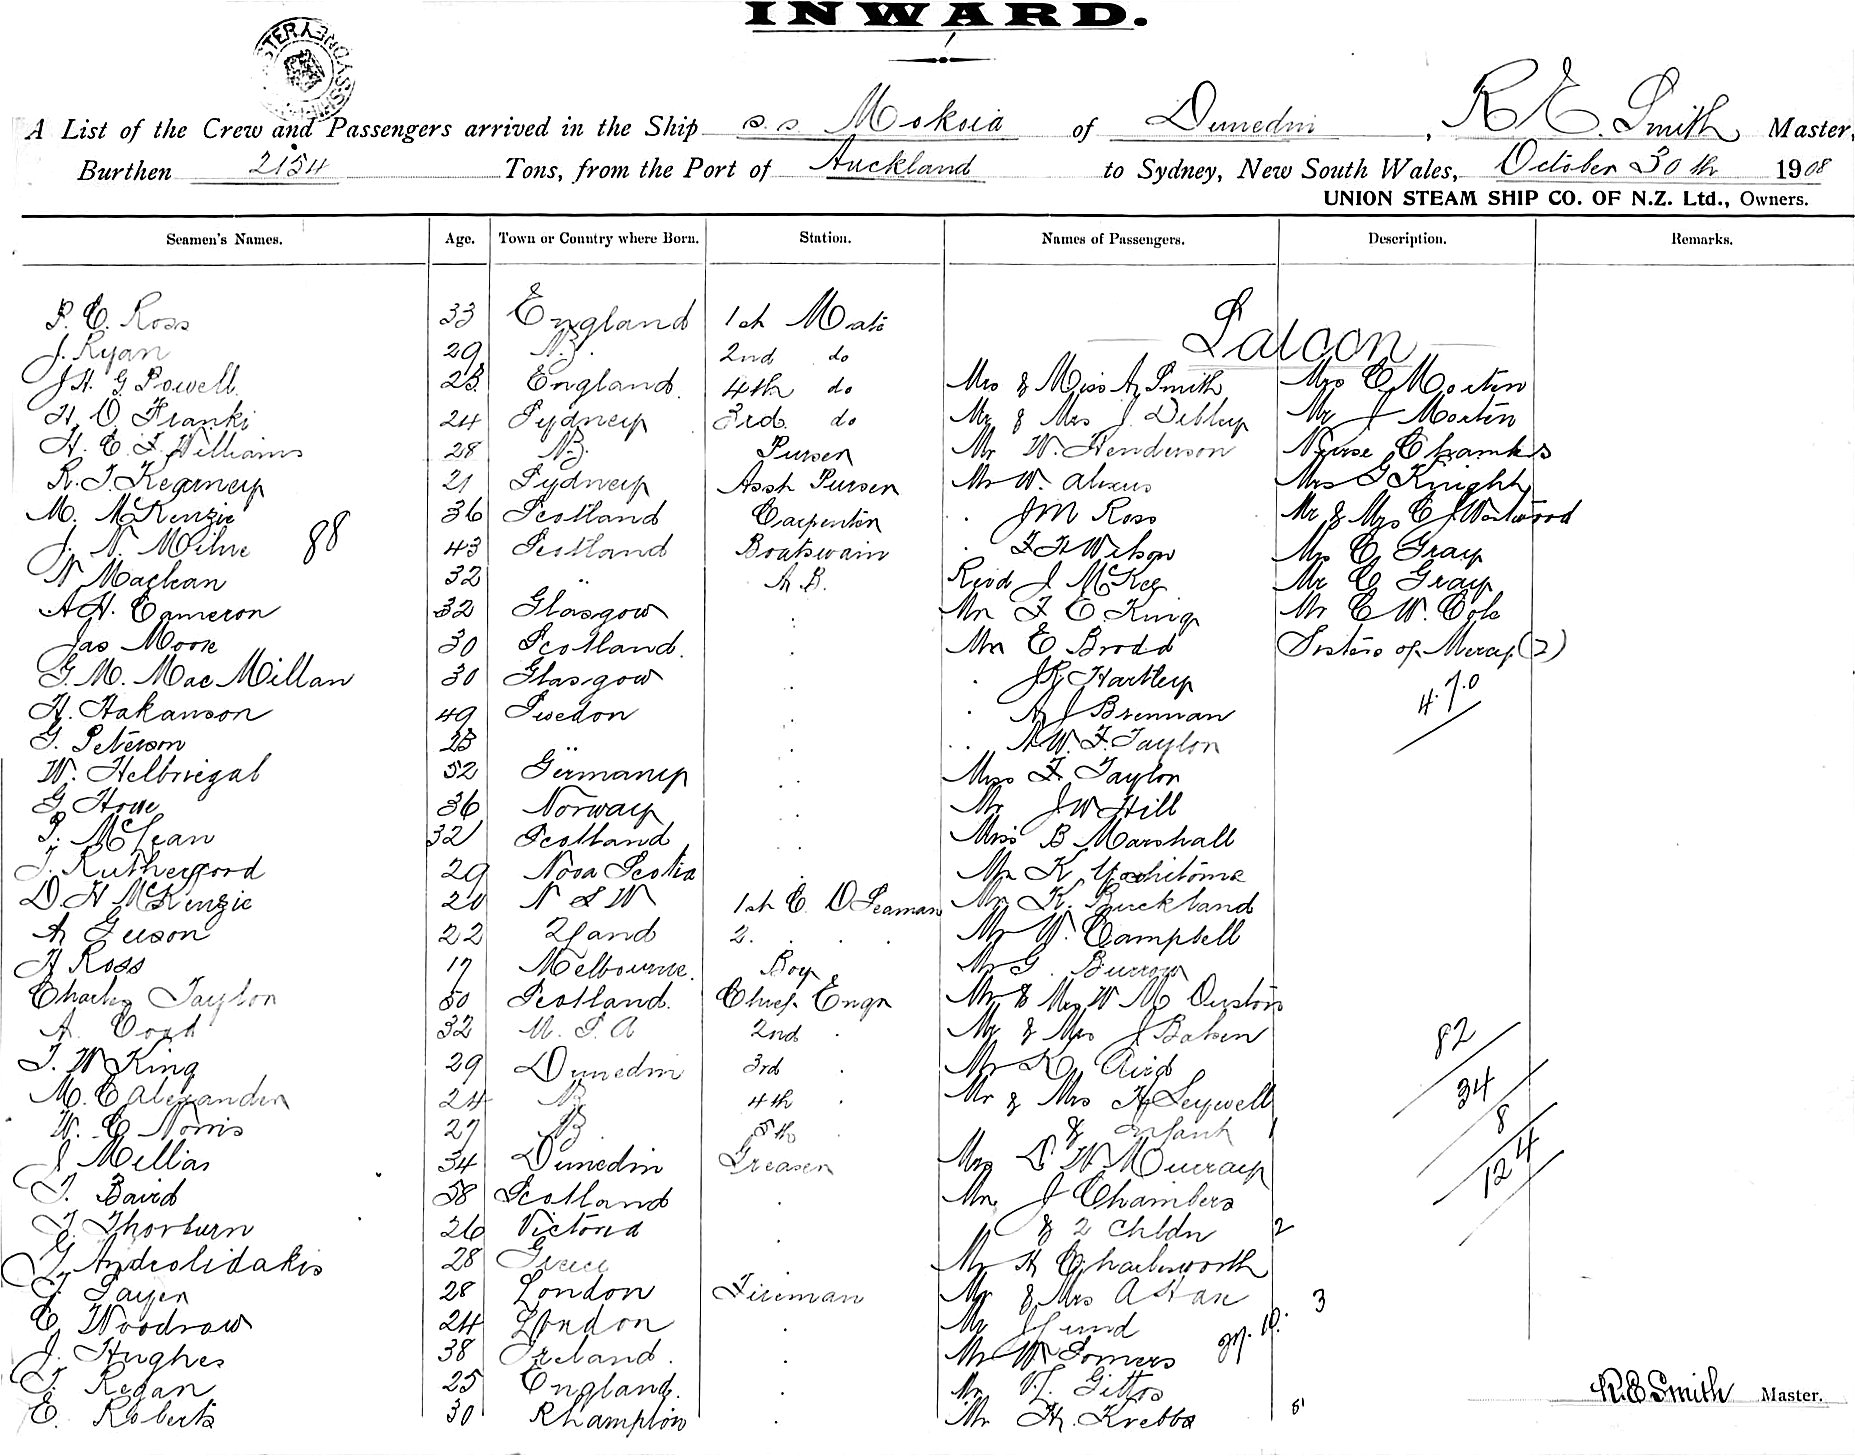 INWARD.
A List of the Crew and Passengers arrived in the Ship s.s Mokoia of Dunedin, R E. Smith Master,
Burthen 2154 Tons, from the Port of Auckland to Sydney, New South Wales, October 30th 1908
UNION STEAM SHIP CO. OF N.Z. Ltd., Owners.
Seamen's Names. Age. Town or Country where Born. Station. Names of Passengers. Description. Remarks.
Saloon
P. C. Ross 33 England 1st Mate
J. Ryan 29 N.Z. 2nd do
J H. G Powell 23 England. 4th do Mrs & Miss A Smith Mrs C Morten
H. O. Franki 24 Sydney 3rd. do Mr & Mrs J. Mr J Morten
H. C. F. Williams 28 N.Z. Purser Mr W. Henderson Nurse
R. J. Kearney 21 Sydney Asst Purser Mr W. Mrs G Knight
M. McKenzie 36 Scotland Carpenter . J M Ross Mr & Mrs C J Westwood
J. N. Milne 88 43 Scotland Boatswain . F H Wilson Mrs C. Gray
N Maclean 32 " A.B. Revd J McKee Mr C Gray
A H. Cameron 32 Glasgow . Mr F. C. King Mr C W. Cole
Jas Moore 30 Scotland. . Mr E Brodd Sisters of Mercy (2)
G. M. Mac Millan 30 Glasgow . . J G Hartley 4.7.0
H. Hakanson 49 Sweden . . A J Brennan
G. Peterson 23 " . . A W. F. Taylor
W. Helbriegal 52 Germany . Miss F. Taylor
G Hove 36 Norway . Mr J W Hill
P. McLean 32 Scotland . Miss B Marshall
J. Rutherford 29 Nova Scotia . Mr K Yoshitome
D H McKenzie 20 N S W 1st C. O Seaman Mr K. Buckland
A Geeson 22 Zland 2. . . . Mr W. Campbell
A Ross 17 Melbourne. Boy Mr G. Burrow
Charles Taylor 50 Scotland. Chief Engr Mr & Mrs W M
A. 32 U. S. A 2nd . Mr & Mrs J Baker 82
J. W King 29 Dunedin 3rd . Mr Reid
M. C Alexander 24 NZ 4th . Mr & Mrs H Seywell 34
W. C Norris 27 NZ 5th & Infant 1 8
J Mellias 34 Dunedin Greaser Mrs D W Murray 4
J. Baird 38 Scotland . Mr J Chambers 12
J. Thorburn 26 Victoria & 2 Chldn 2
G Androlidakis 28 Greece . Mr H Charlesworth
J. Sayer 28 London Fireman Mr & Mrs 3
C. Woodrow 24 London . Mr
J. Hughes 38 Ireland. . Mr W Somers
J. Regan 25 England. . Mr Gittos R. E Smith Master.
E. Roberts 30 Rhampton . Mr H. Krebbs 5